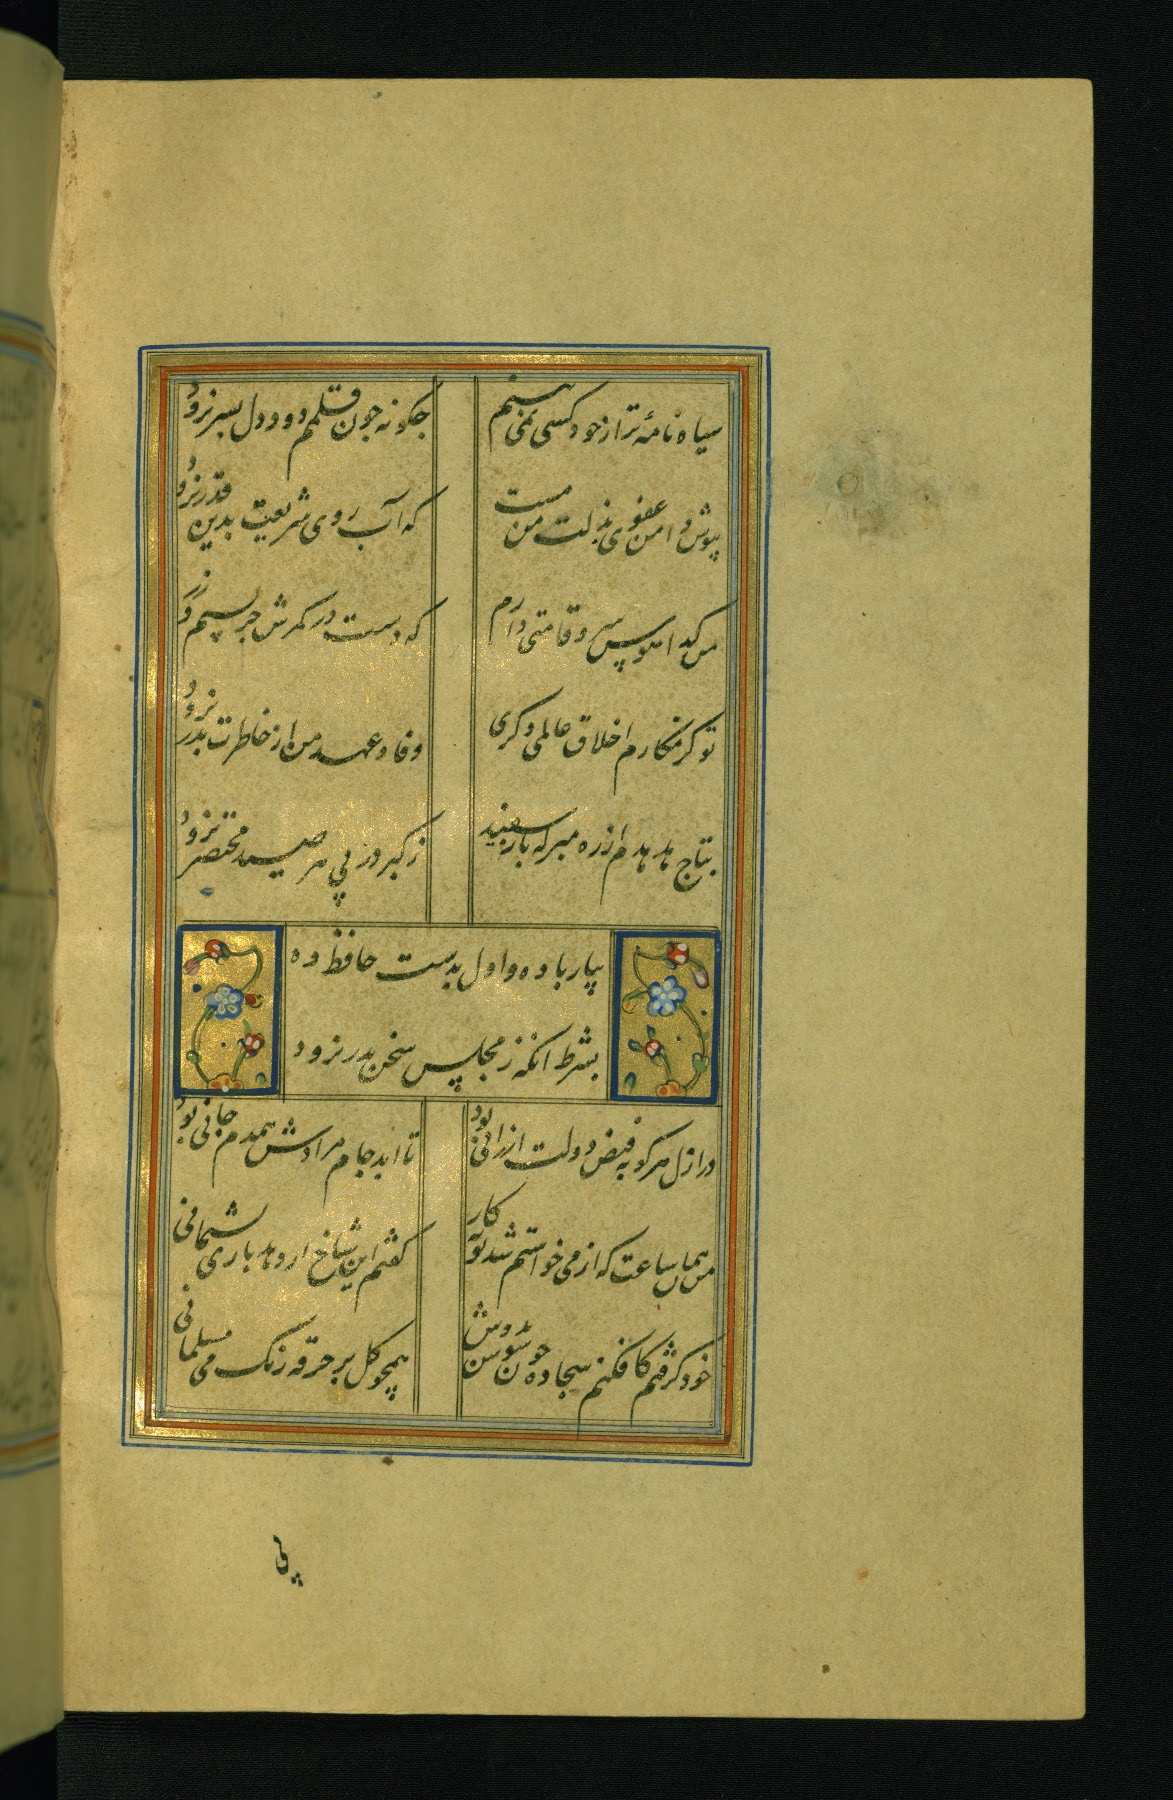 سیاه نامهٔ تر از خود کسی نمی بینم
جکونه جون قلمم دود دل بسر نرود
بپوش دامن عفوی بذلت من مست
که آب روی شریعت بدین قدر نرود
من کدا هوس سرو قامتی دارم
که دست در کمرش جز بسیم و زر نرود
تو کز مکارم اخلاق عالمی دکری
وفاء عهد من از خاطرت بدر نرود
بتاج هدهدم از ره مبر که باز سفید
ز کبر در پی هر صید مختصر نرود
بیار باده و اول بدست حافظ ده
بشرط انکه ز مجلس سخن بدر نرود
در ازل هر کو به فیض دولت ارزانی بود
تا ابد جام مرادش همدم جانی بود
من همان ساعت که از می خواستم شد توبه کار
کفتم این شاخ ار دهد باری بشیمانی
خود کرفتم کافکنم سجاده جون سوسن بدوش
همجو کل بر خرقه رنک می مسلمانی